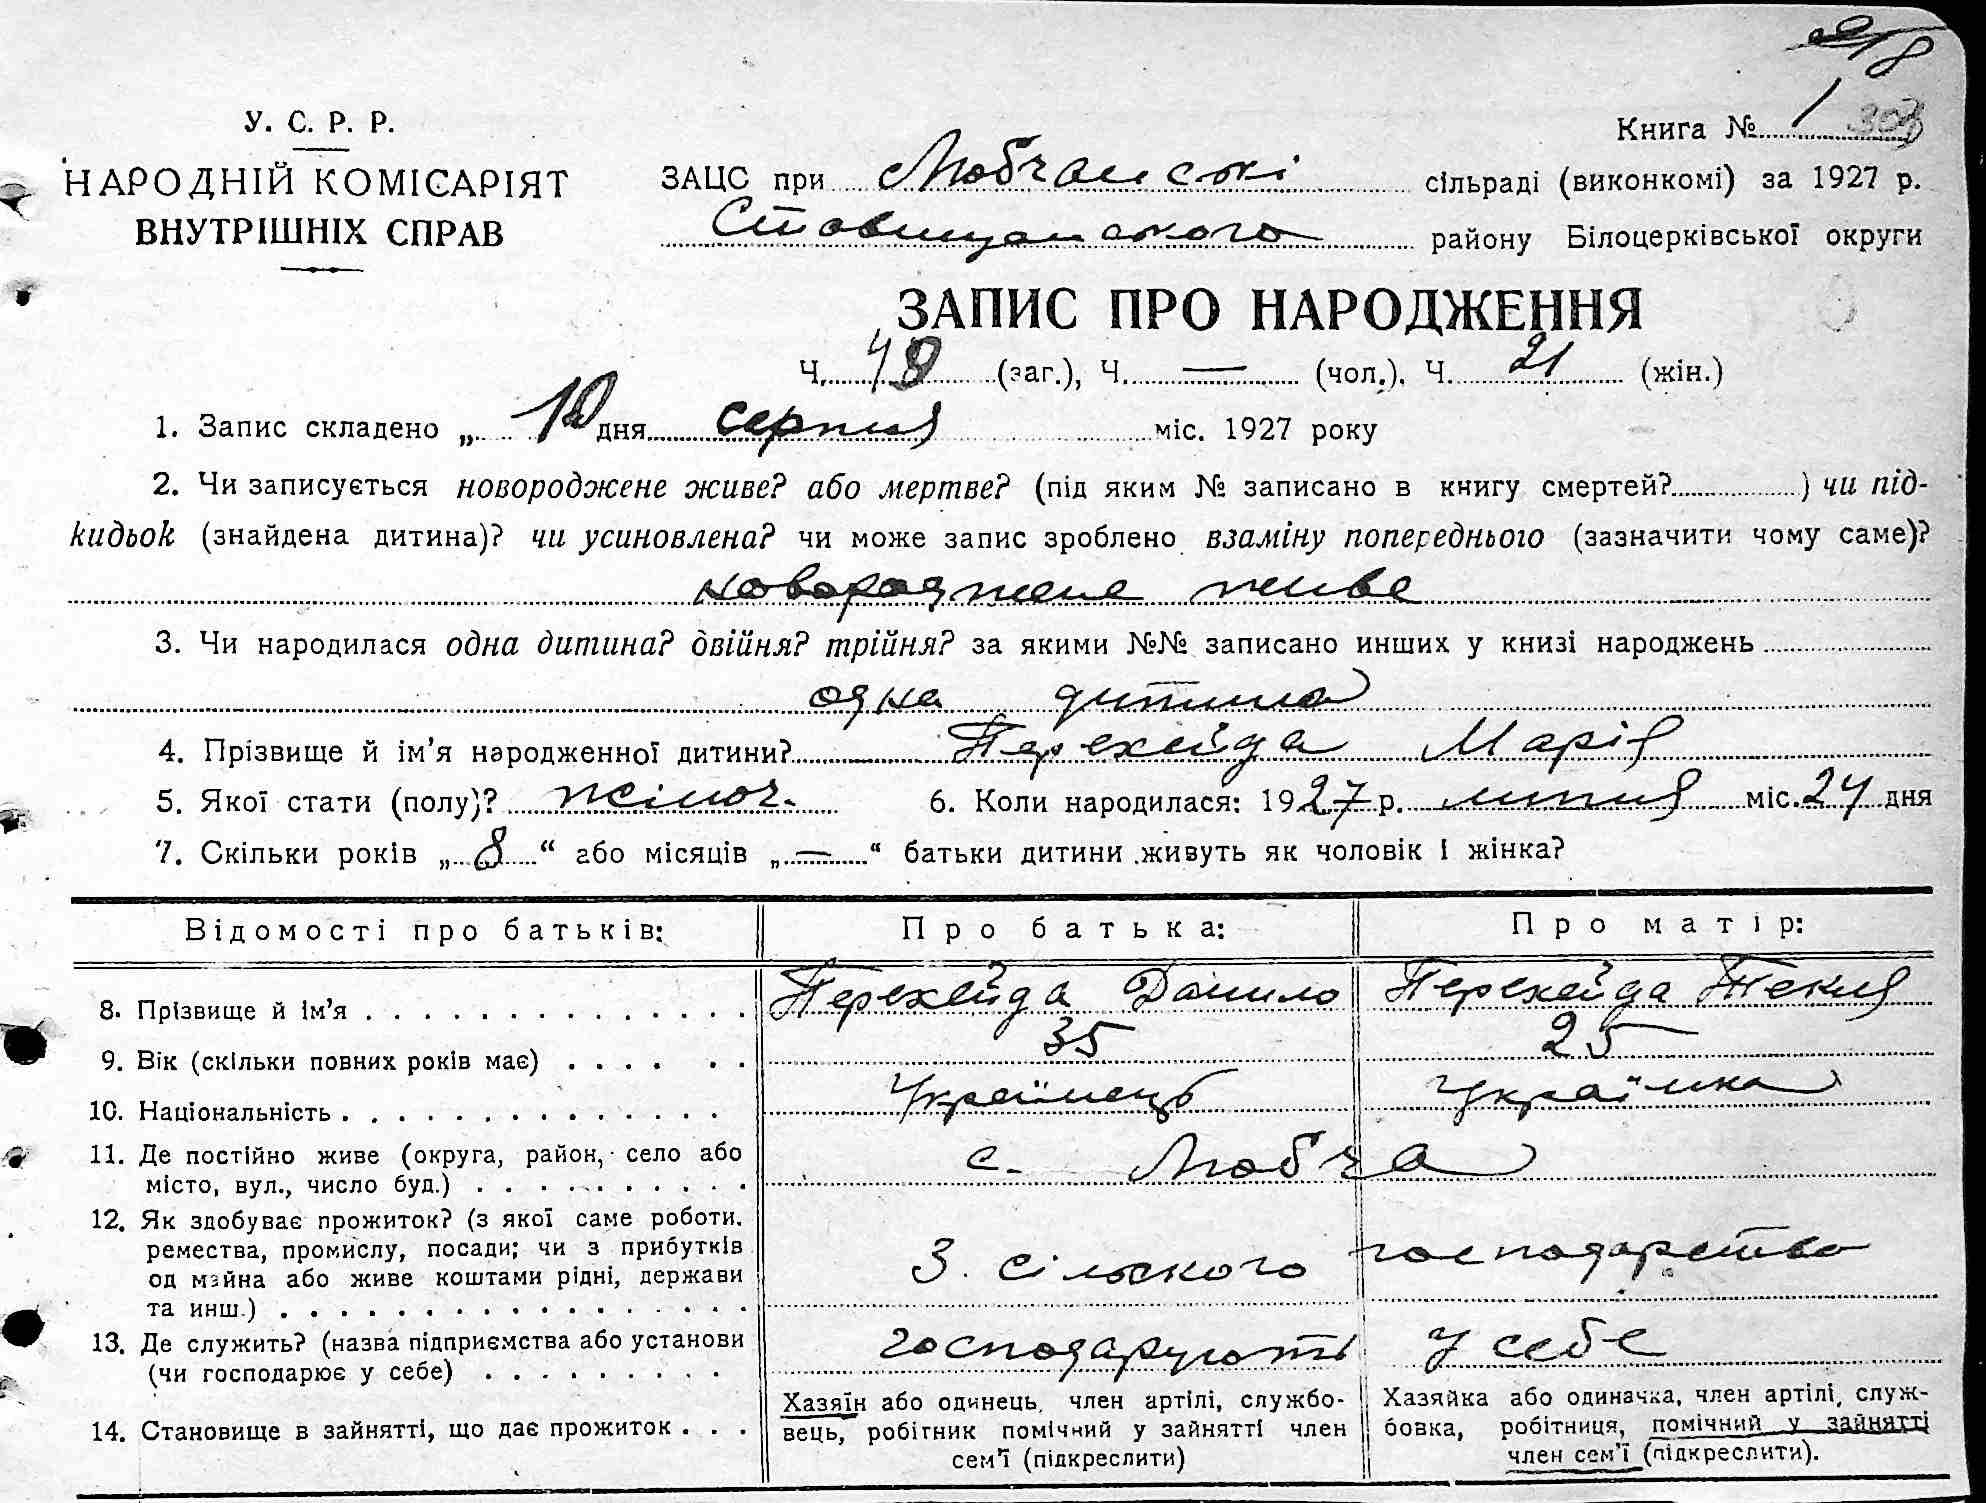 218
У. С. Р. Р.
НАРОДНІЙ КОМІСАРІЯТ
ВНУТРІШНІХ СПРАВ
Книга № 1 303
ЗАЦС при Любчанські сільраді (виконкомі) за 1927 р.
Ставищанського району Білоцерківської округи
ЗАПИС ПРО НАРОДЖЕННЯ
Ч. 48 (заг.), Ч. — (чол.). Ч. 21 (жін.)
1. Запис складено „ 10 дня серпня міс. 1927 року
2. Чи записується новороджене живе? або мертве? (під яким № записано в книгу смертей? ) чи під-
кидьок (знайдена дитина)? чи усиновлена? чи може запис зроблено взаміну попереднього (зазначити чому саме)?
новороджене живе
3. Чи народилася одна дитина? двійня? трійня? за якими №№ записано инших у книзі народжень
одна дитина
4. Прізвище й ім’я народженної дитини? Перехейда Марія
5. Якої стати (полу)? жіноч. 6. Коли народилася: 1927 р. липня міс. 24 дня
7. Скільки років „ 8 “ або місяців „ — “ батьки дитини живуть як чоловік і жінка?
Відомості про батьків: Про батька: Про матір:
8. Прізвище й ім’я Перехейда Данило Перехейда Текля
9. Вік (скільки повних років має) 35 25
10. Національність Українець Українка
11. Де постійно живе (округа, район, село або
місто, вул., число буд.) с. Любча
12. Як здобуває прожиток? (з якої саме роботи,
ремества, промислу, посади; чи з прибутків
од майна або живе коштами рідні, держави
та инш.) З сільского господарства
13. Де служить? (назва підприємства або установи
(чи господарює у себе) господарують у себе
14. Становище в зайнятті, що дає прожиток
Хазяїн або одинець, член артілі, службо-
вець, робітник помічний у зайнятті член
сем’ї (підкреслити)
Хазяйка або одиначка, член артілі, служ-
бовка, робітниця, помічний у зайнятті
член сем’ї (підкреслити).